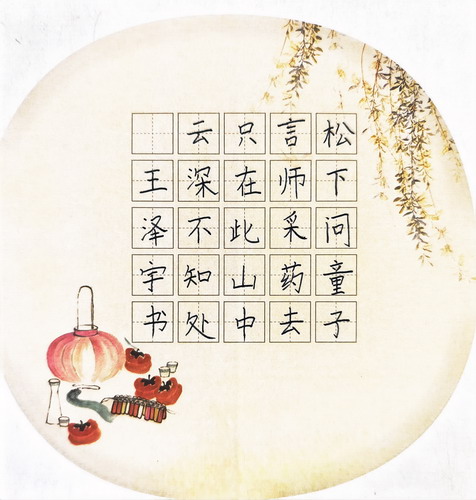 松下问童子
言师采药去
只在此山中
云深不知处
王泽宇书